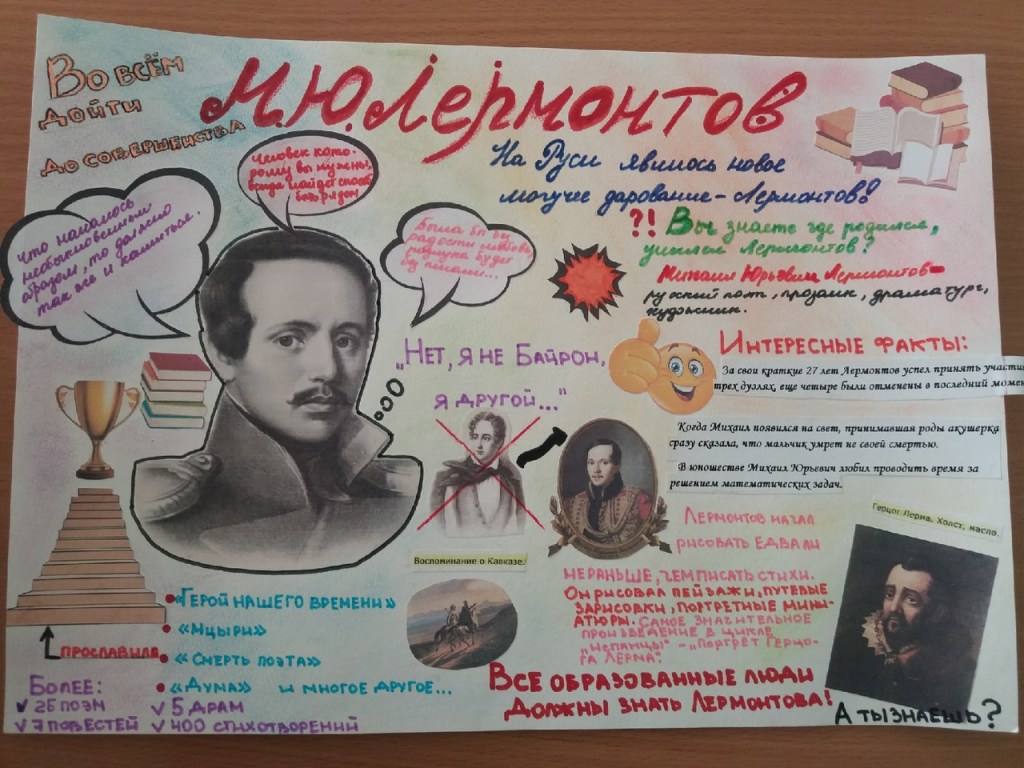 Во всём
дойти
до совершенства
М.Ю.Лермонтов
На Руси явилось новое
могучее дарование-Лермонтов!
?! Вы знаете где родился,
учился Лермонтов?
Михаил Юрьевич Лермонтов-
русский поэт, прозаик, драматург,
художник.
Человек кото-
рому вы нужны,
всегда найдет способ
быть рядом
Что началось
необыкновенным
образом, то должно
так же и кончиться.
была бы
радости
будет
„Нет, я не Байрон,
я другой..."
Интересные факты:
За свои краткие 27 лет Лермонтов успел принять участи
трех дуэлях, еще четыре были отменены в последний момен
Когда Михаил появился на свет, принимавшая роды акушерка
сразу сказала, что мальчик умрет не своей смертью.
В юношестве Михаил Юрьевич любил проводить время за
решением математических задач.
Лермонтов начал
рисовать едва ли
не раньше, чем писать стихи.
Он рисовал пейзажи, путевые
зарисовки, портретные мини-
атюры. Самое значительное
произведение в цикле
„Испанцы" - „Портрет Герцо-
га Лерма".
Герцог Лерма. Холст, масло.
Воспоминание о Кавказе.
прославила
•«Герой нашего времени»
• «Мцыри»
• «Смерть поэта»
• «Дума» и многое другое...
Более:
✓ 25 поэм ✓ 5 драм
✓ 7 повестей ✓ 400 стихотворений
Все образованные люди
должны знать Лермонтова!
А ты знаешь?